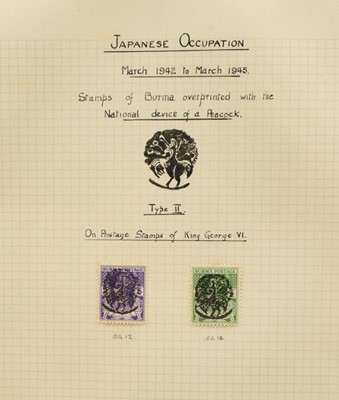 JAPANESE OCCUPATION
March 1942 to March 1945.
Stamps of Burma overprinted with the
National device of a Peacock.
Type II.
On Postage Stamps of King George VI.
BURMA POSTAGE
BURMA POSTAGE
SG 12
SG 14